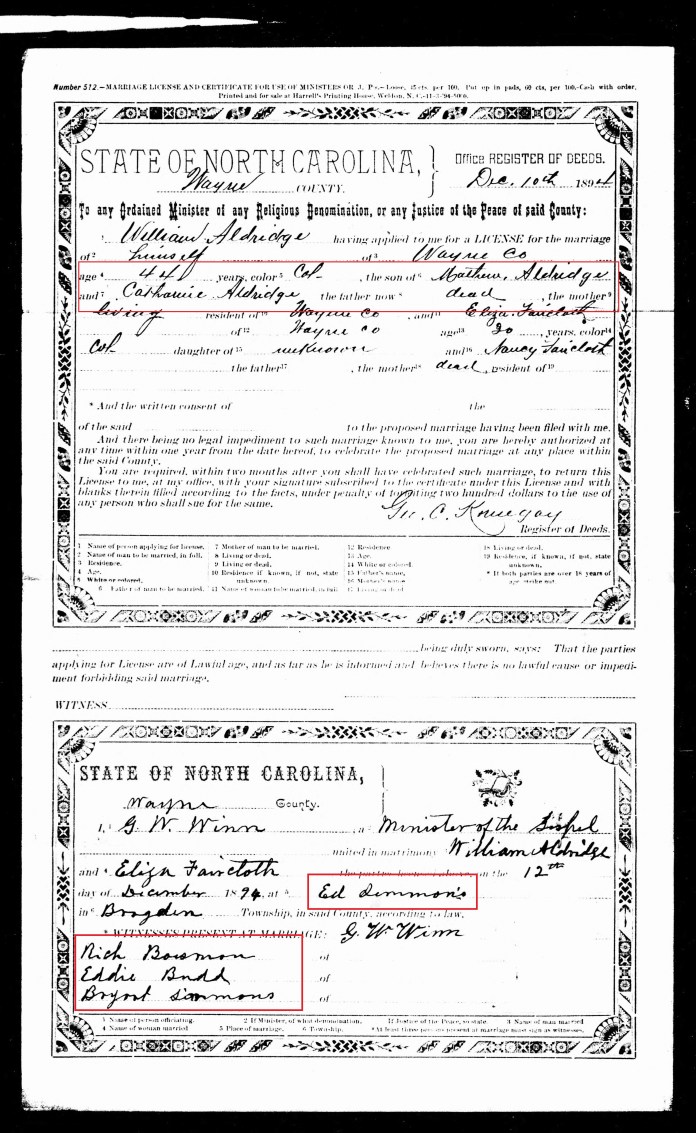 Number 512.—MARRIAGE LICENSE AND CERTIFICATE FOR USE OF MINISTERS OR J. P's.—Loose, 45 cts. per 100. Put up in pads, 60 cts, per 100,-Cash with order,
Printed and for sale at Harrell's Printing House, Weldon, N. C.
STATE OF NORTH CAROLINA,
Office REGISTER OF DEEDS.
Wayne COUNTY.
Dec. 10th 1894
To any Ordained Minister of any Religious Denomination, or any Justice of the Peace of said County:
1 William Aldridge having applied to me for a LICENSE for the marriage
of 2 himself of 3 Wayne Co
age 4 44 years, color 5 Col , the son of 6 Mathew Aldridge
and 7 Catharine Aldridge the father now 8 dead , the mother 9
living resident of 10 Wayne Co , and 11 Eliza Faircloth
of 12 Wayne co age 13 30 , years, color 14
Col daughter of 15 unknown and 16 Nancy Faircloth
the father 17 , the mother 18 dead , resident of 19
* And the written consent of the
of the said to the proposed marriage having been filed with me.
And there being no legal impediment to such marriage known to me, you are hereby authorized at
any time within one year from the date hereof, to celebrate the proposed marriage at any place within
the said County.
You are required, within two months after you shall have celebrated such marriage, to return this
License to me, at my office, with your signature subscribed to the certificate under this License and with
blanks therein filled according to the facts, under penalty of forfeiting two hundred dollars to the use of
any person who shall sue for the same.
Geo. C. Kornegay
Register of Deeds.
1 Name of person applying for license. 7 Mother of man to be married. 12 Residence 18 Living or dead.
2 Name of man to be married, in full. 8 Living or dead. 13 Age. 19 Residence, if known, if not, state
3 Residence. 9 Living or dead. 14 White or colored. unknown.
4 Age. 10 Residence if known, if not, state 15 Father's name, * If both parties are over 18 years of
5 White or colored, unknown. 16 Mother's name age strike out.
6 Father of man to be married. 11 Name of woman to be married, in full 17 Living or dead
being duly sworn, says: That the parties
applying for License are of Lawful age, and as far as he is informed and believes there is no lawful cause or impedi-
ment forbidding said marriage.
WITNESS
STATE OF NORTH CAROLINA,
Wayne County.
I, G. W. Winn , a Minister of the Gospel
united in matrimony William Aldridge
and 4 Eliza Faircloth the parties licensed above, on the 12th
day of December 1894, at 5 Ed Simmon's
in 6 Brogden Township, in said County, according to law.
* WITNESSES PRESENT AT MARRIAGE: G W Winn
Rich Bowman of
Eddie Budd of
Bryant Simmons of
1 Name of person officiating. 2 If Minister, of what denomination, If Justice of the Peace, so state. 3 Name man married
4 Name of woman married 5 Place of marriage. 6 Township. *At least three persons present at marriage must sign as witnesses.